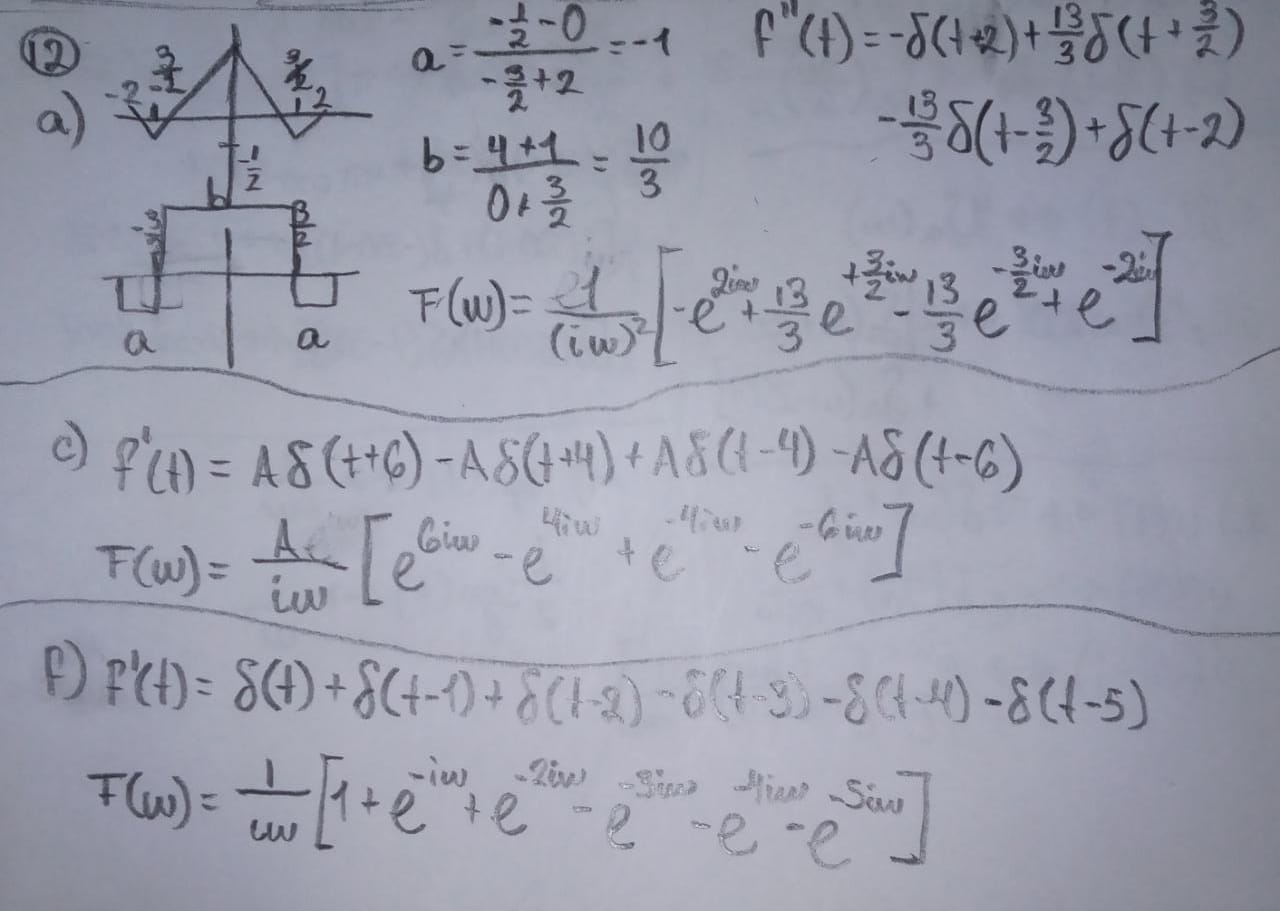 12
a)
-2 -3/2 3/2 2
1 1
-1/2
b
-3/2 3/2
a a
a = (-1/2 - 0)/(-3/2 + 2) = -1
b = (4+1)/(0+3/2) = 10/3
f''(t) = -δ(t+2) + 13/3 δ(t + 3/2)
-13/3 δ(t - 3/2) + δ(t-2)
F(w) = 1/(iw)² [-e^{2iw} + 13/3 e^{+3/2 iw} - 13/3 e^{-3/2 iw} + e^{-2i}]
c) f'(t) = Aδ(t+6) - Aδ(t+4) + Aδ(t-4) - Aδ(t-6)
F(w) = A/iw [e^{6iw} - e^{4iw} + e^{-4iw} - e^{-6iw}]
f) f'(t) = δ(t) + δ(t-1) + δ(t-2) - δ(t-3) - δ(t-4) - δ(t-5)
F(w) = 1/iw [1 + e^{-iw} + e^{-2iw} - e^{-3iw} - e^{-4iw} - e^{-5iw}]